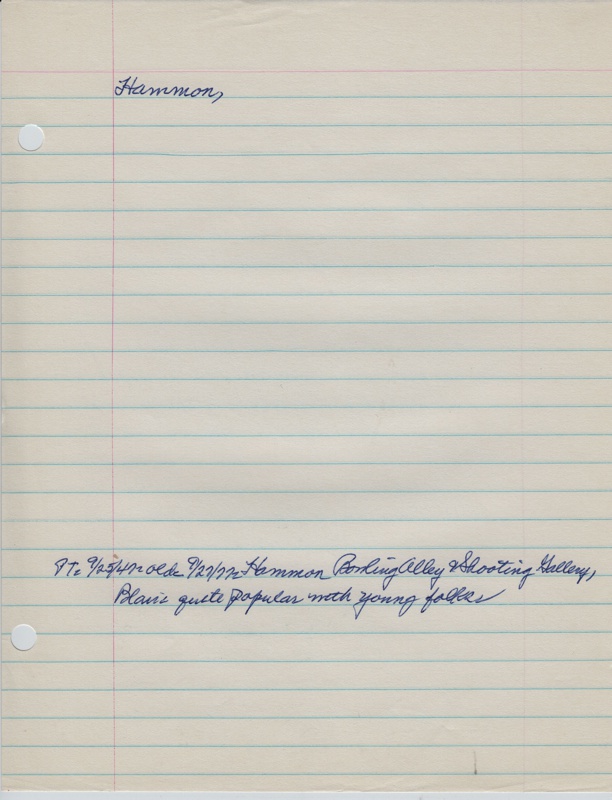 Hammon,
PT: 9/25/47 olds 9/27/77: Hammon Bowling Alley & Shooting Gallery,
Blair: quite popular with young folks